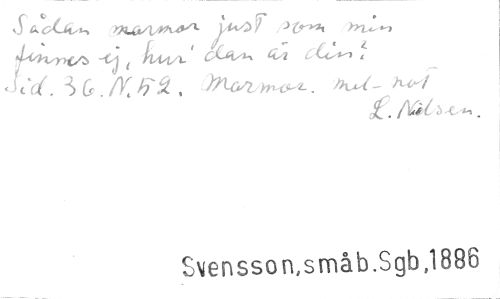 Sådan mormor just som min
finnes ej, hur' dan är din?
Sid. 36. N. 52. Mormor. mel-not
L. Nilsen.
Svensson,småb.Sgb,1886